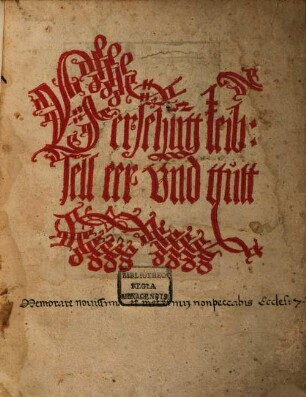 Versehung leib :
sell eer vnd gutt
BIBLIOTHECA
REGIA
MONACENSIS
Memorare nouissima et non peccabis Eccles: 7